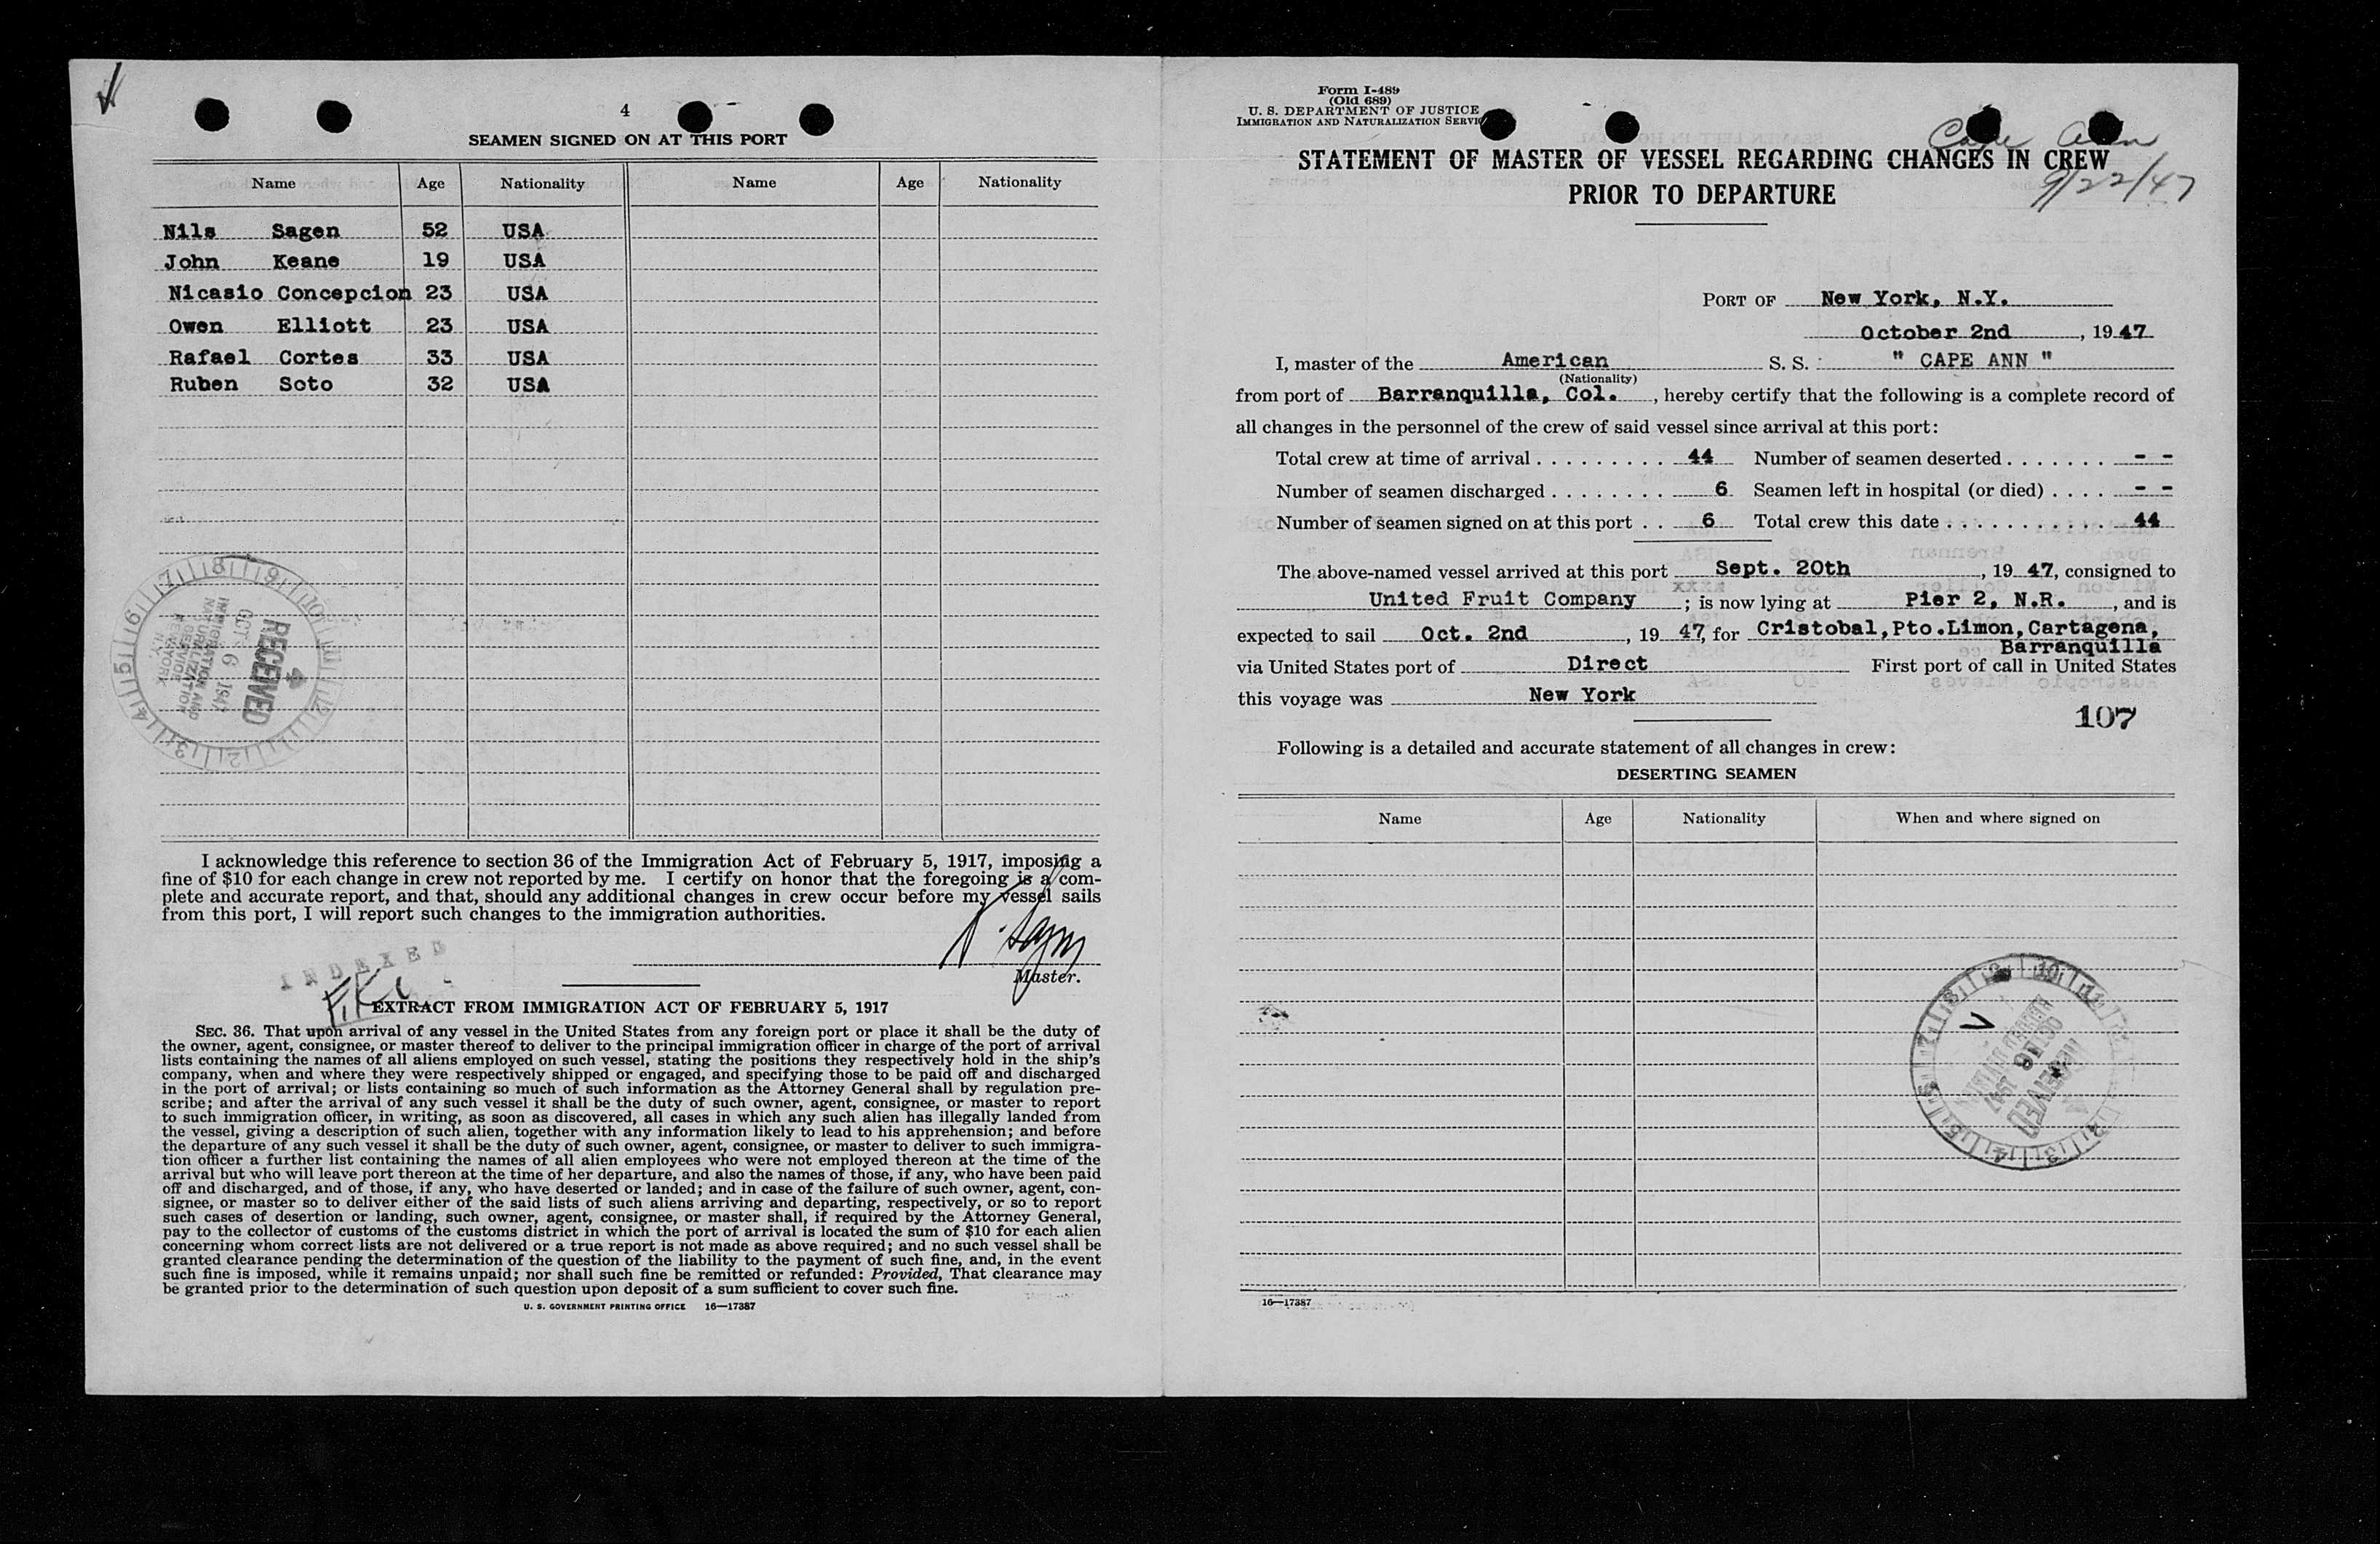 4
SEAMEN SIGNED ON AT THIS PORT
Name Age Nationality Name Age Nationality
Nils Sagen 52 USA
John Keane 19 USA
Nicasio Concepcion 23 USA
Owen Elliott 23 USA
Rafael Cortes 33 USA
Ruben Soto 32 USA
RECEIVED
OCT 6 1947
IMMIGRATION AND
NATURALIZATION
SERVICE
NEW YORK
N.Y.
I acknowledge this reference to section 36 of the Immigration Act of February 5, 1917, imposing a
fine of $10 for each change in crew not reported by me. I certify on honor that the foregoing is a com-
plete and accurate report, and that, should any additional changes in crew occur before my vessel sails
from this port, I will report such changes to the immigration authorities.
Master.
INDEXED
EXTRACT FROM IMMIGRATION ACT OF FEBRUARY 5, 1917
SEC. 36. That upon arrival of any vessel in the United States from any foreign port or place it shall be the duty of
the owner, agent, consignee, or master thereof to deliver to the principal immigration officer in charge of the port of arrival
lists containing the names of all aliens employed on such vessel, stating the positions they respectively hold in the ship's
company, when and where they were respectively shipped or engaged, and specifying those to be paid off and discharged
in the port of arrival; or lists containing so much of such information as the Attorney General shall by regulation pre-
scribe; and after the arrival of any such vessel it shall be the duty of such owner, agent, consignee, or master to report
to such immigration officer, in writing, as soon as discovered, all cases in which any such alien has illegally landed from
the vessel, giving a description of such alien, together with any information likely to lead to his apprehension; and before
the departure of any such vessel it shall be the duty of such owner, agent, consignee, or master to deliver to such immigra-
tion officer a further list containing the names of all alien employees who were not employed thereon at the time of the
arrival but who will leave port thereon at the time of her departure, and also the names of those, if any, who have been paid
off and discharged, and of those, if any, who have deserted or landed; and in case of the failure of such owner, agent, con-
signee, or master so to deliver either of the said lists of such aliens arriving and departing, respectively, or so to report
such cases of desertion or landing, such owner, agent, consignee, or master shall, if required by the Attorney General,
pay to the collector of customs of the customs district in which the port of arrival is located the sum of $10 for each alien
concerning whom correct lists are not delivered or a true report is not made as above required; and no such vessel shall be
granted clearance pending the determination of the question of the liability to the payment of such fine, and, in the event
such fine is imposed, while it remains unpaid; nor shall such fine be remitted or refunded: Provided, That clearance may
be granted prior to the determination of such question upon deposit of a sum sufficient to cover such fine.
U. S. GOVERNMENT PRINTING OFFICE 16—17387
Form I-489
(Old 689)
U. S. DEPARTMENT OF JUSTICE
IMMIGRATION AND NATURALIZATION SERVICE
Cape Ann
STATEMENT OF MASTER OF VESSEL REGARDING CHANGES IN CREW
PRIOR TO DEPARTURE
9/22/47
PORT OF New York, N.Y.
October 2nd, 1947
I, master of the American S. S. " CAPE ANN "
(Nationality)
from port of Barranquilla, Col., hereby certify that the following is a complete record of
all changes in the personnel of the crew of said vessel since arrival at this port:
Total crew at time of arrival . . . . . . . . . 44 Number of seamen deserted . . . . . . . - -
Number of seamen discharged . . . . . . . . 6 Seamen left in hospital (or died) . . . . - -
Number of seamen signed on at this port . . 6 Total crew this date . . . . . . . . . . . 44
The above-named vessel arrived at this port Sept. 20th, 1947, consigned to
United Fruit Company; is now lying at Pier 2, N.R., and is
expected to sail Oct. 2nd, 1947, for Cristobal, Pto. Limon, Cartagena,
Barranquilla
via United States port of Direct First port of call in United States
this voyage was New York
107
Following is a detailed and accurate statement of all changes in crew:
DESERTING SEAMEN
Name Age Nationality When and where signed on
RECEIVED
OCT 6 1947
16—17387